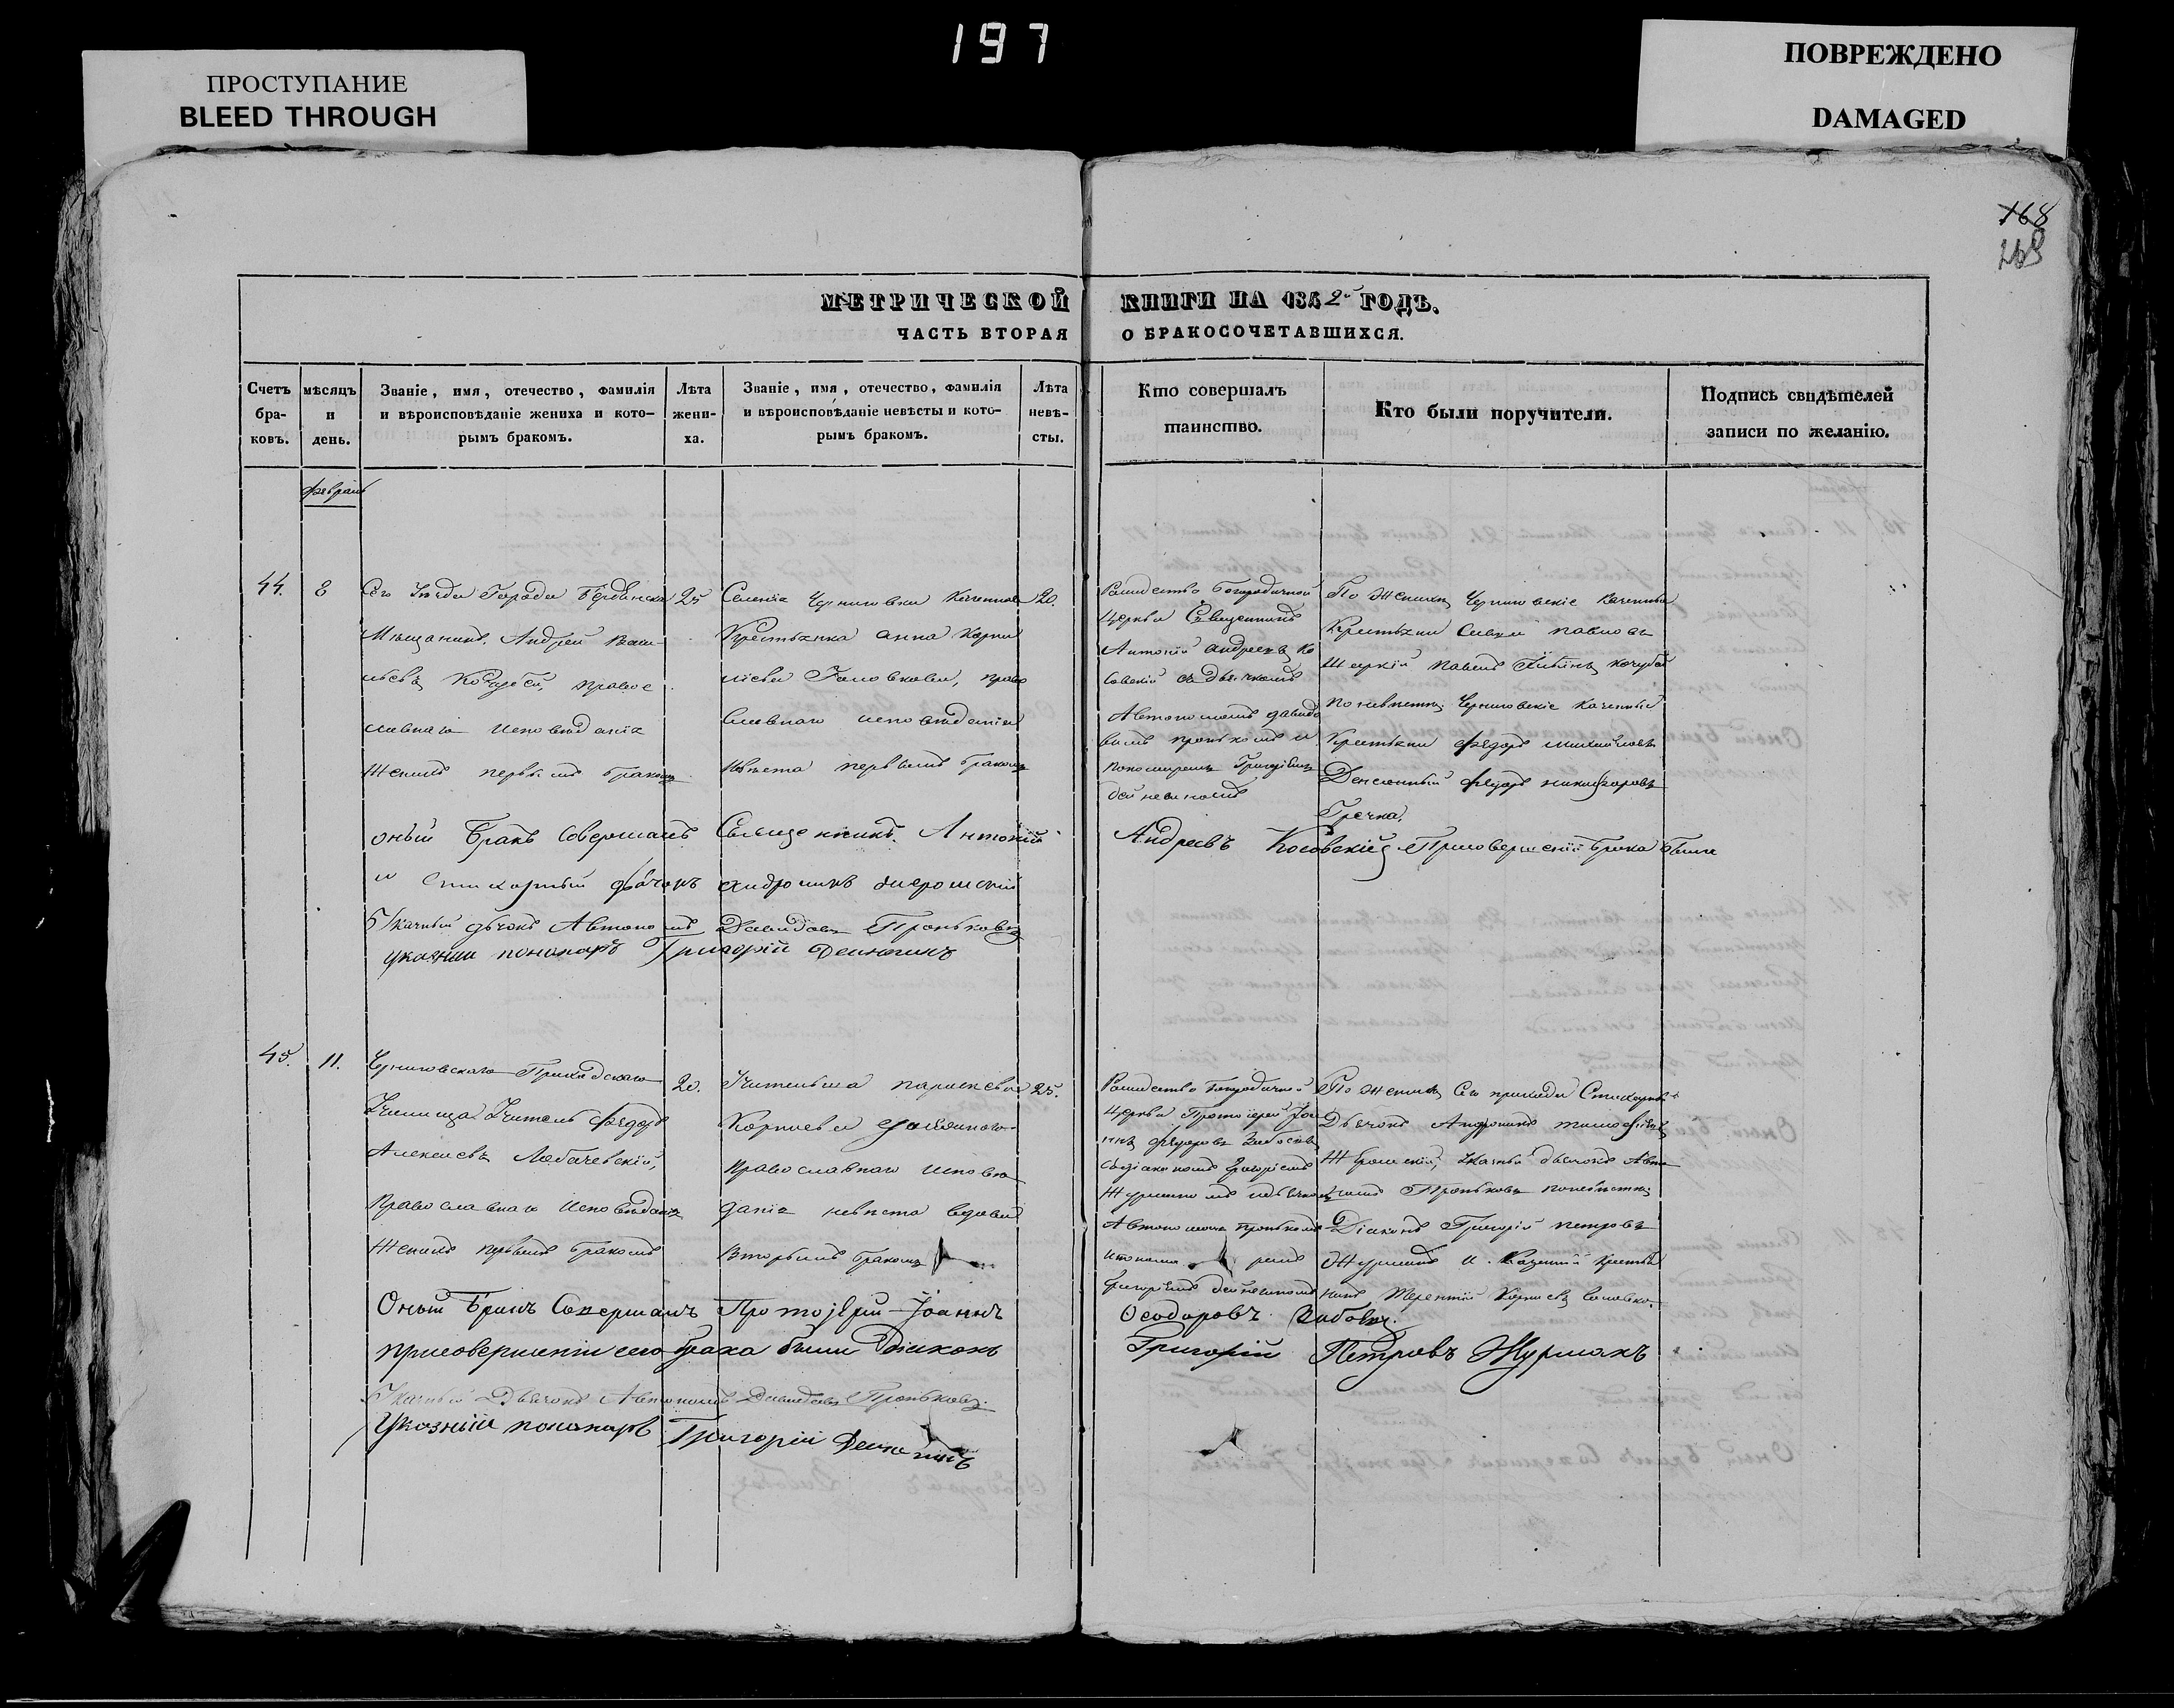 197
ПРОСТУПАНИЕ
BLEED THROUGH
ПОВРЕЖДЕНО
DAMAGED
168
МЕТРИЧЕСКОЙ КНИГИ НА 1842й ГОДЪ.
ЧАСТЬ ВТОРАЯ О БРАКОСОЧЕТАВШИХСЯ.
Счетъ бра-ковъ.
мѣсяцъ и день.
Званіе, имя, отечество, фамилія
и вѣроисповѣданіе жениха и кото-
рымъ бракомъ.
Лѣта жени-ха.
Званіе, имя, отечество, фамилія
и вѣроисповѣданіе невѣсты и кото-
рымъ бракомъ.
Лѣта невѣ-сты.
Кто совершалъ
таинство.
Кто были поручители.
Подпись свидѣтелей
записи по желанію.
февраль
44.
8
Сего Уѣзда Города Бердянска
Мѣщанинъ Андрей Васи
льевъ Кочубей, правос
лавнаго исповѣданія
Женихъ первымъ бракомъ
25
Селенія Черниговки Казенная
Крестьянка анна Корни
ліева Головкова, право
славнаго исповѣданія
Невѣста первымъ бракомъ
20.
Рождество Богородичной
Церкви Священникъ
Антоній андреевъ Ко
совскій съ дьячкомъ
Автономомъ давидо
вымъ проньковымъ и
пономаремъ Григоріемъ
По Женихѣ Черниговскіе Казенные
Крестьяне Савва павловъ
павелъ кочубей
по невѣстѣ Черниговскіе Казенные
Крестьяне федоръ михайловъ
федоръ никифоровъ
Гречка,
оный Бракъ Совершалъ Священникъ Антоній Андреевъ Косовскій При совершеніи брака были
и Стихарный дьячокъ андроникъ
Указный дьячокъ Автономъ Давидовъ Проньковъ
указный пономарь Григорій Дейнегинъ
45.
11.
Черниговскаго Приходскаго
Училища Учитель Федоръ
Алексѣевъ Лобачевскій,
Православнаго Исповѣданія
Женихъ первымъ бракомъ
20.
Учительша параскева
Корнѣева
Православнаго исповѣ
данія невѣста вдова
Вторымъ бракомъ
25.
Рождество Богородичной
Церкви Протоіерей Іоа
ннъ федоровъ
съ діакономъ Григоріемъ
Журманомъ и дьячкомъ
Автономомъ
и понома ремъ
Григоріемъ
По Женихѣ Сего прихода Стихарный
Дьячокъ Андроникъ тимофѣевъ
Указный дьячокъ Авто
номъ Проньковъ по невѣстѣ
Діаконъ Григорій петровъ
Журманъ и Казенный крестья
нинъ Терентій Корнѣевъ
Оный Бракъ Совершалъ Протоіерей Іоаннъ Ѳеодоровъ
при совершеніи сего брака были Діаконъ Григорій Петровъ Журманъ
Указный Дьячокъ Автономъ Давидовъ Проньковъ
Указный пономарь Григорій Дейнегинъ